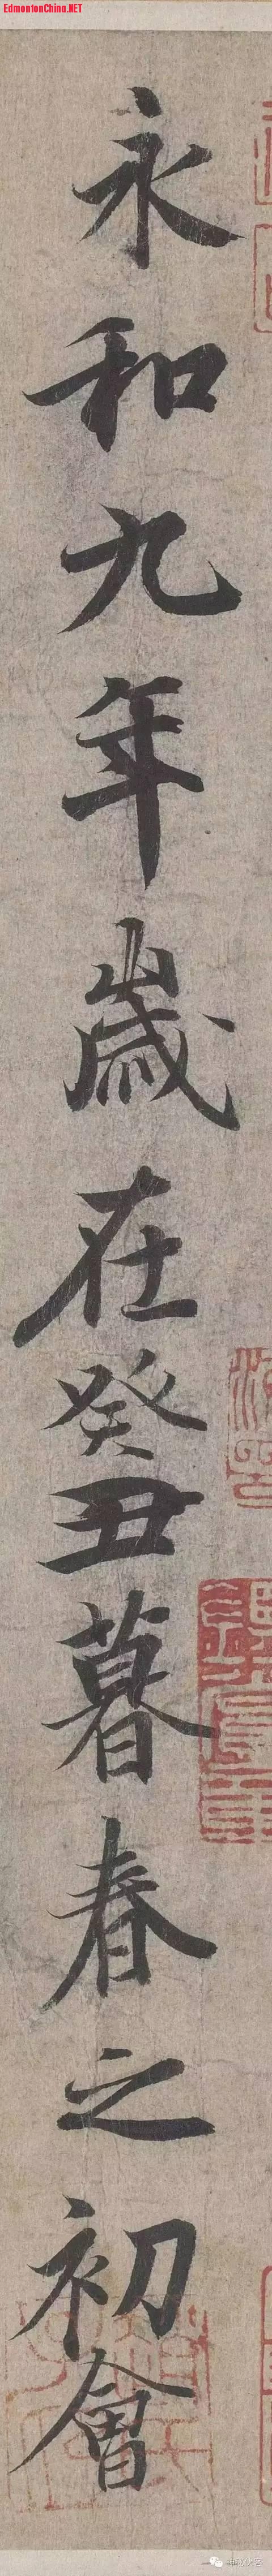 EdmontonChina.NET
永和九年歲在癸丑暮春之初會
神秘侠客